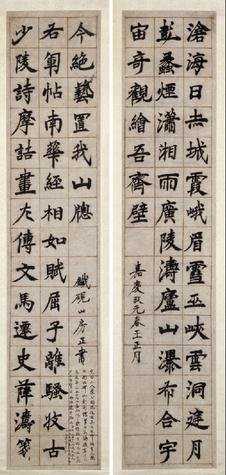 滄海日赤城霞峨眉雪巫峽雲洞庭月
彭蠡煙瀟湘雨廣陵濤廬山瀑布合宇
宙奇觀繪吾齋壁
嘉慶玖元春王正月
少陵詩摩詰畫左傳文馬遷史薛濤箋
右軍帖南華經相如賦屈子離騷收古
今絕藝置我山牕
鐵硯山房正書